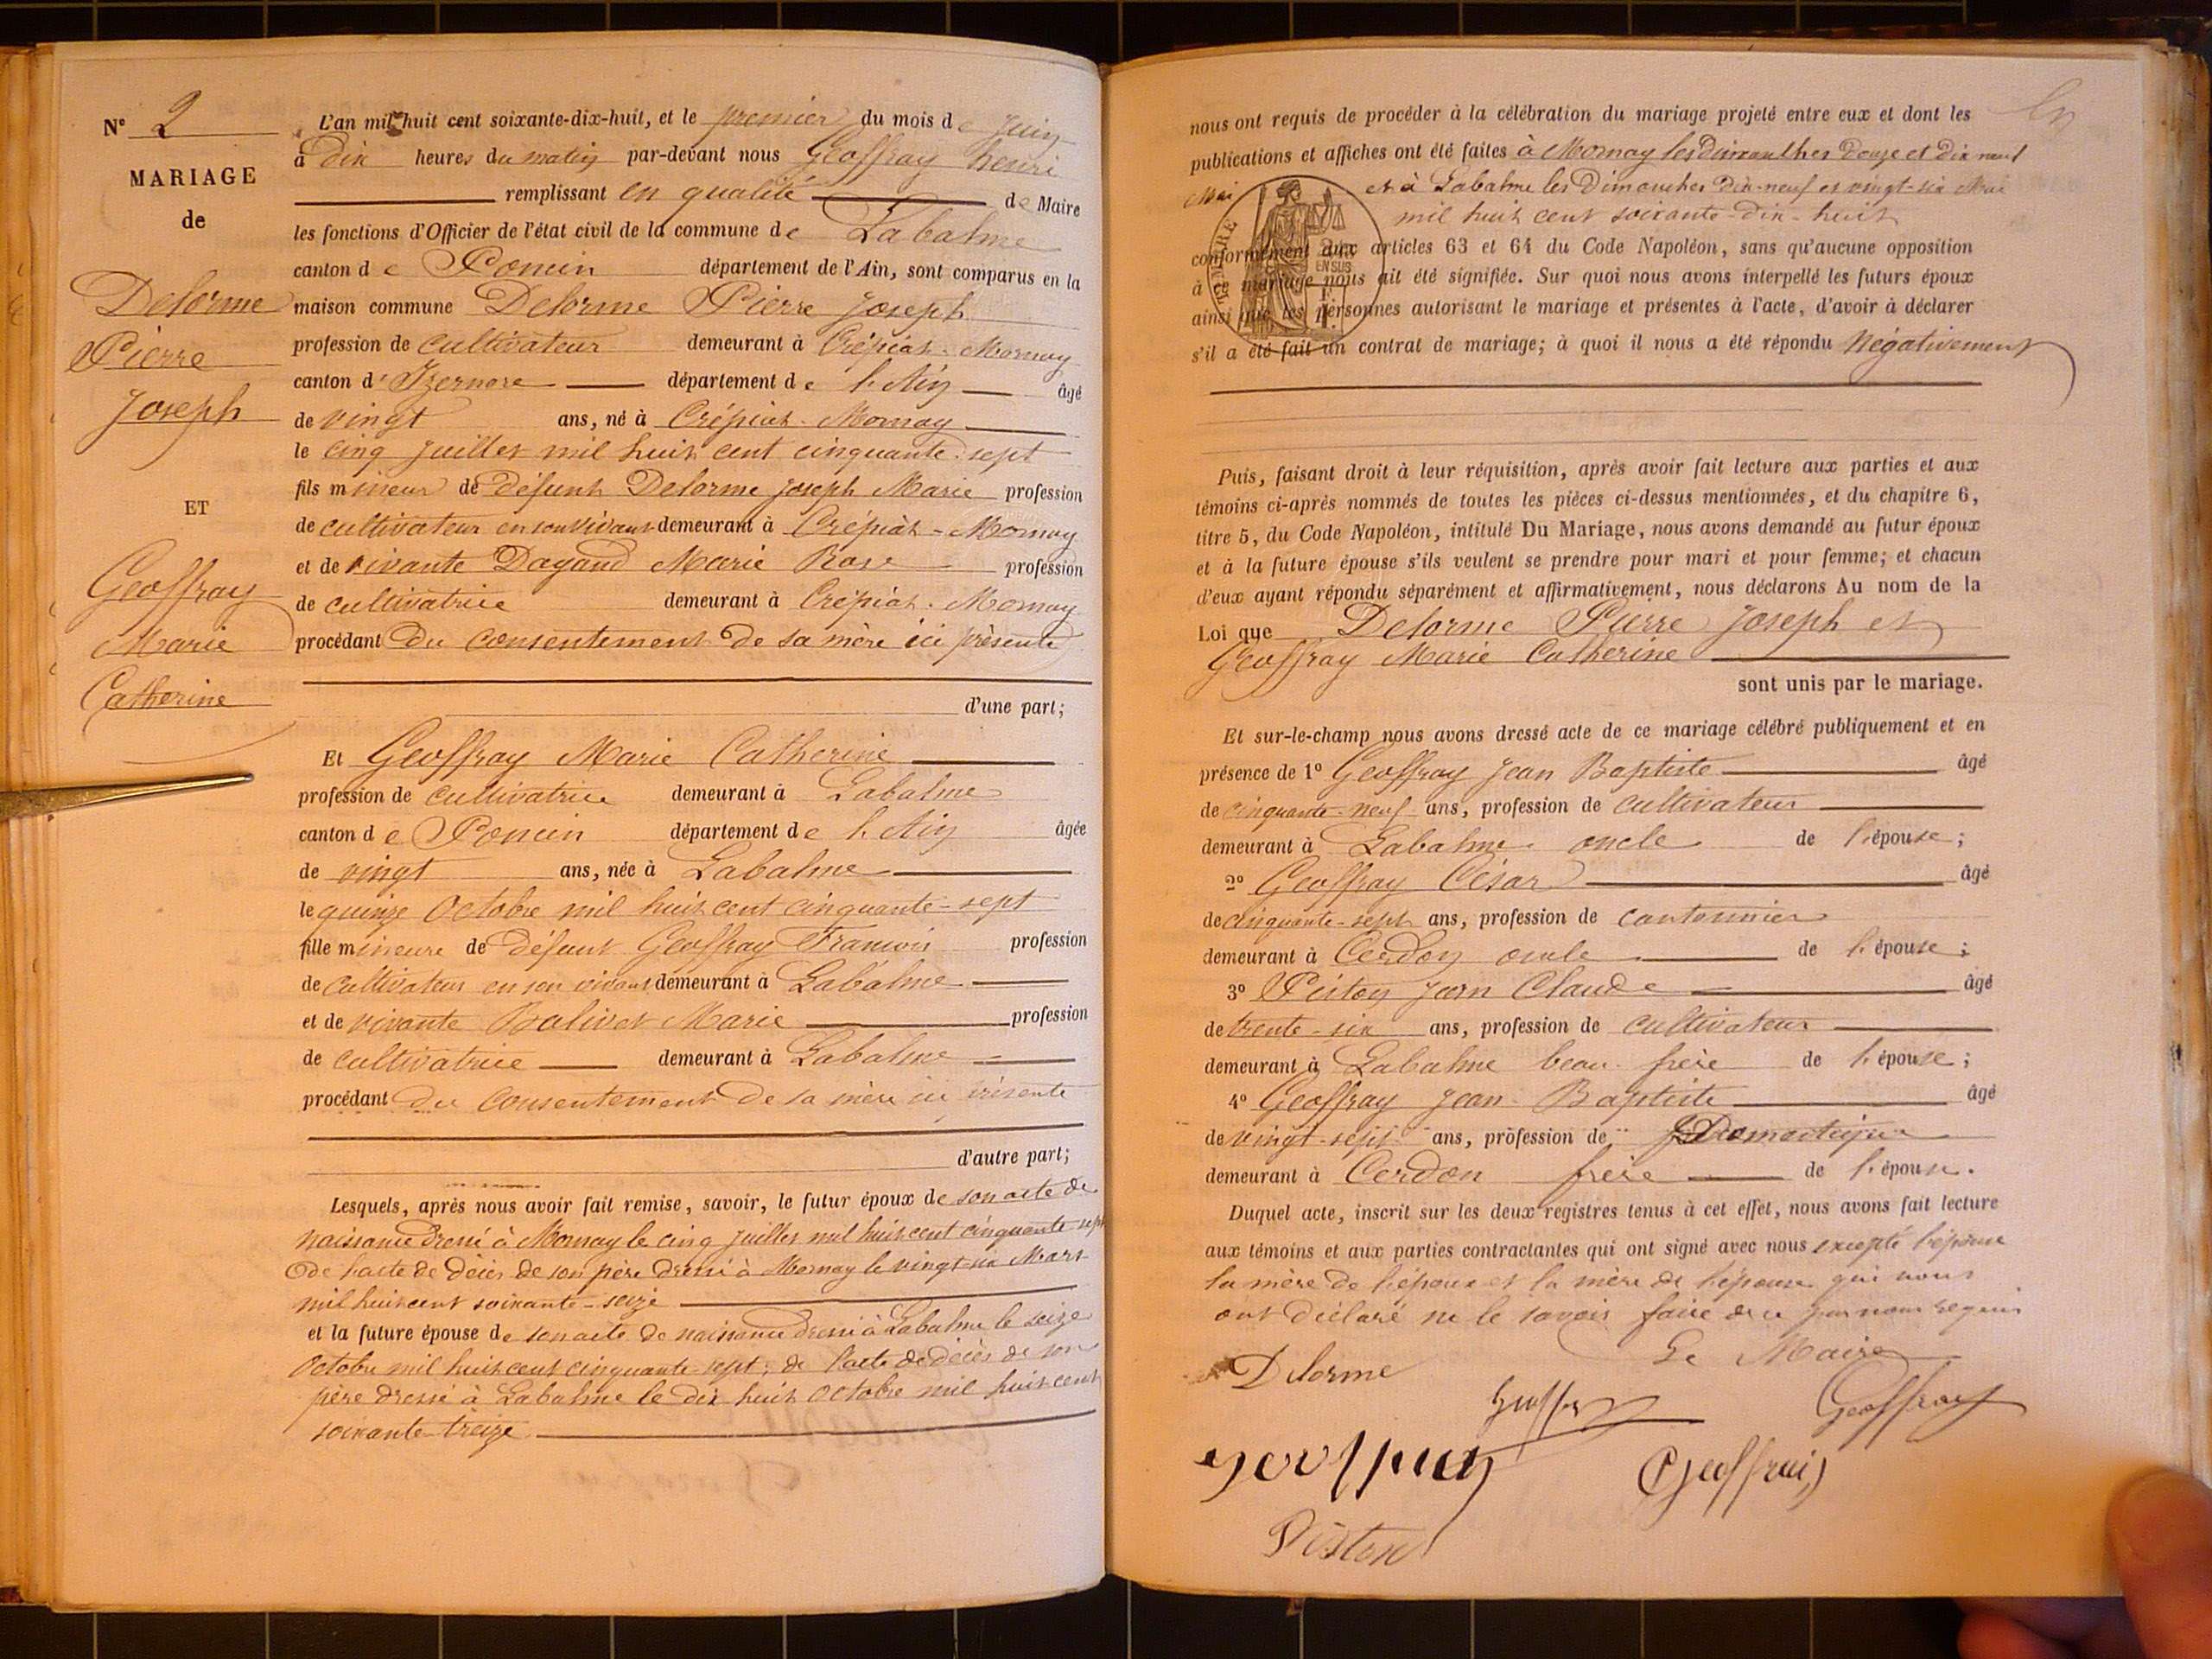 N° 2
MARIAGE
de
Delorme
Pierre
Joseph
ET
Geoffray
Marie
Catherine
L'an mil huit cent soixante-dix-huit, et le premier du mois de Juin
à Dix heures du matin par-devant nous Geoffray henri
remplissant en qualité de Maire
les fonctions d'Officier de l'état civil de la commune de Labalme
canton de Poncin département de l'Ain, sont comparus en la
maison commune Delorme Pierre Joseph
profession de Cultivateur demeurant à Crépiat-Mornay
canton d'Izernore département de l'Ain âgé
de vingt ans, né à Crépiat-Mornay
le cinq Juillet mil huit cent cinquante-sept
fils mineur de défunt Delorme Joseph Marie profession
de cultivateur en son vivant demeurant à Crépiat-Mornay
et de vivante Dagand Marie Rose profession
de cultivatrice demeurant à Crépiat-Mornay
procédant du consentement de sa mère ici présente
d'une part;
Et Geoffray Marie Catherine
profession de cultivatrice demeurant à Labalme
canton de Poncin département de l'Ain âgée
de vingt ans, née à Labalme
le quinze Octobre mil huit cent cinquante-sept
fille mineure de défunt Geoffray Francois profession
de Cultivateur en son vivant demeurant à Labalme
et de vivante Balivet Marie profession
de cultivatrice demeurant à Labalme
procédant du consentement de sa mère ici présente
d'autre part;
Lesquels, après nous avoir fait remise, savoir, le futur époux de son acte de
naissance dressé à Mornay le cinq Juillet mil huit cent cinquante-sept
de l'acte de décès de son père dressé à Mornay le vingt-six Mars
mil huit cent soixante-seize
et la future épouse de son acte de naissance dressé à Labalme le seize
Octobre mil huit cent cinquante-sept; de l'acte de décès de son
père dressé à Labalme le dix huit Octobre mil huit cent
soixante-treize
nous ont requis de procéder à la célébration du mariage projeté entre eux et dont les
publications et affiches ont été faites à Mornay les Dimanches Douze et Dix neuf
Mai et à Labalme les Dimanches Dix-neuf et vingt-six Mai
mil huit cent soixante-dix-huit
conformément aux articles 63 et 64 du Code Napoléon, sans qu'aucune opposition
à ce mariage nous ait été signifiée. Sur quoi nous avons interpellé les futurs époux
ainsi que les personnes autorisant le mariage et présentes à l'acte, d'avoir à déclarer
s'il a été fait un contrat de mariage; à quoi il nous a été répondu Négativement
Puis, faisant droit à leur réquisition, après avoir fait lecture aux parties et aux
témoins ci-après nommés de toutes les pièces ci-dessus mentionnées, et du chapitre 6,
titre 5, du Code Napoléon, intitulé Du Mariage, nous avons demandé au futur époux
et à la future épouse s'ils veulent se prendre pour mari et pour femme; et chacun
d'eux ayant répondu séparément et affirmativement, nous déclarons Au nom de la
Loi que Delorme Pierre Joseph et
Geoffray Marie Catherine
sont unis par le mariage.
Et sur-le-champ nous avons dressé acte de ce mariage célébré publiquement et en
présence de 1° Geoffray Jean Baptiste âgé
de cinquante-neuf ans, profession de cultivateur
demeurant à Labalme oncle de l'épouse;
2° Geoffray César âgé
de cinquante-sept ans, profession de cantonnier
demeurant à Cerdon oncle de l'épouse;
3° Piston Jean Claude âgé
de trente-six ans, profession de cultivateur
demeurant à Labalme beau-frère de l'épouse;
4° Geoffray Jean-Baptiste âgé
de vingt-sept ans, profession de Domestique
demeurant à Cerdon frère de l'épouse.
Duquel acte, inscrit sur les deux registres tenus à cet effet, nous avons fait lecture
aux témoins et aux parties contractantes qui ont signé avec nous excepté l'épouse
la mère de l'époux et la mère de l'épouse qui nous
ont déclaré ne le savoir faire de ce par nous requis
Le Maire
Delorme
Geoffray
Geoffray
Geoffray
Geoffray
Piston